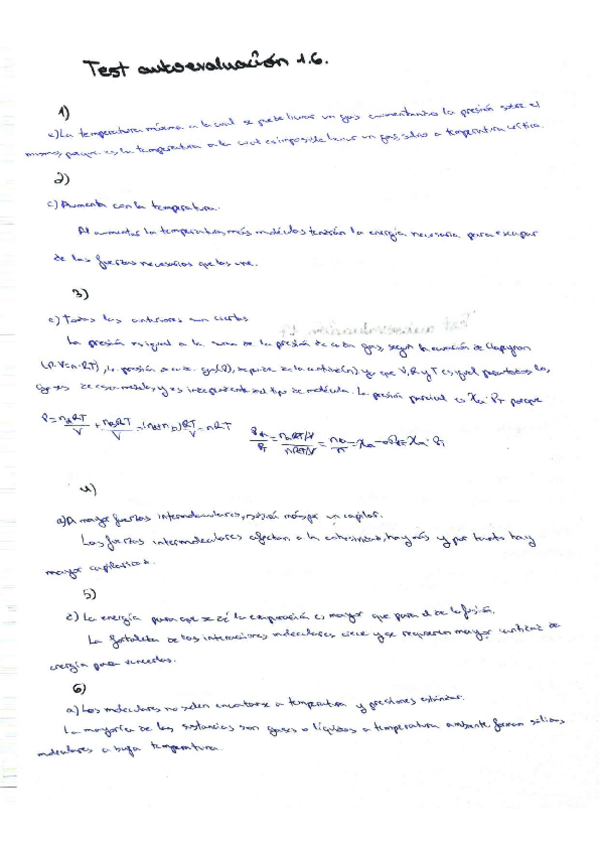 Test autoevaluación 1.6.
1)
c) La temperatura máxima a la cual se puede licuar un gas aumentando la presión sobre el
mismo, porque es la temperatura a la cual es imposible licuar un gas, temperatura crítica.
2)
c) Aumenta con la temperatura.
Al aumentar la temperatura, más moléculas tendrán la energía necesaria para escapar
de las fuerzas necesarias que las une.
3)
e) Todas las anteriores son ciertas
La presión es igual a la suma de la presión de cada gas, según la ecuación de Clapeyron
(P·V=n·RT), la presión de cada gas (P), depende de la cantidad (n) ya que V, R y T es igual para todos los
gases de esa mezcla, y es independiente del tipo de molécula. La presión parcial es Xa·PT porque
P = naRT/V + nbRT/V = (na+nb)RT/V = nRT Pa/PT = naRT/V / nRT/V = na/n = Xa → Pa = Xa·PT
4)
a) A mayor fuerzas intermoleculares, subirá más por un capilar.
Las fuerzas intermoleculares afectan a la cohesividad, hay más y por tanto hay
mayor capilaridad.
5)
c) La energía para que se dé la evaporación es mayor que para el de la fusión.
La fortaleza de las interacciones moleculares crece y se requieren mayor cantidad de
energía para vencerlas.
6)
a) Los moleculares no suelen encontrarse a temperatura y presiones estándar.
La mayoría de las sustancias son gases o líquidos a temperatura ambiente, forman sólidos
moleculares a baja temperatura.